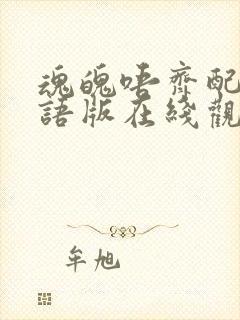 魂魄唔齊配
語版在綫觀
牟旭